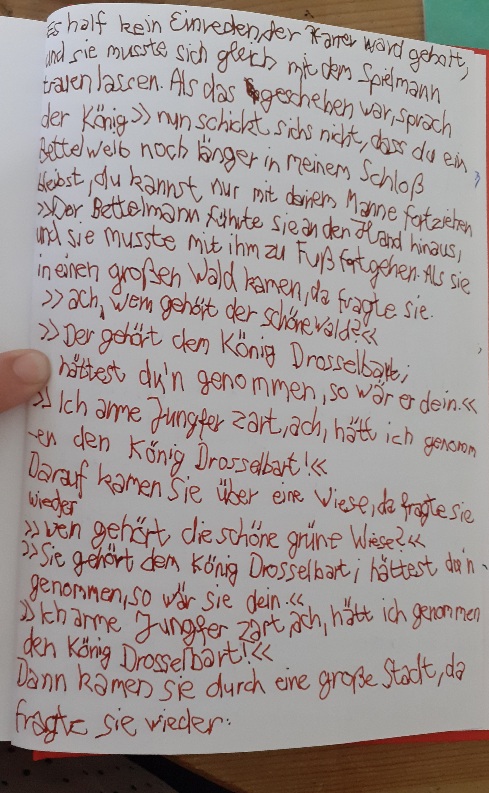 Es half kein Einreden, der Pfarrer ward geholt,
und sie musste sich gleich mit dem Spielmann
trauen lassen. Als das geschehen war, sprach
der König >> nun schickt sichs nicht, dass du ein
Bettelweib noch länger in meinem Schloß
bleibst, du kannst nur mit deinem Manne fortziehen
>>Der Bettelmann führte sie an der Hand hinaus,
und sie musste mit ihm zu Fuß fortgehen. Als sie
in einen großen Wald kamen, da fragte sie.
>> ach, wem gehört der schöne Wald?<<
>> Der gehört dem König Drosselbart;
hättest du'n genommen, so wär er dein.<<
>> Ich arme Jungfer zart, ach, hätt ich genomm
-en den König Drosselbart!<<
Darauf kamen Sie über eine Wiese, da fragte sie
wieder
>> wen gehört die schöne grüne Wiese?<<
>> Sie gehört dem König Drosselbart; hättest du'n
genommen, so wär sie dein.<<
>> Ich arme Jungfer zart, ach, hätt ich genommen
den König Drosselbart!<<
Dann kamen sie durch eine große Stadt, da
fragte sie wieder: